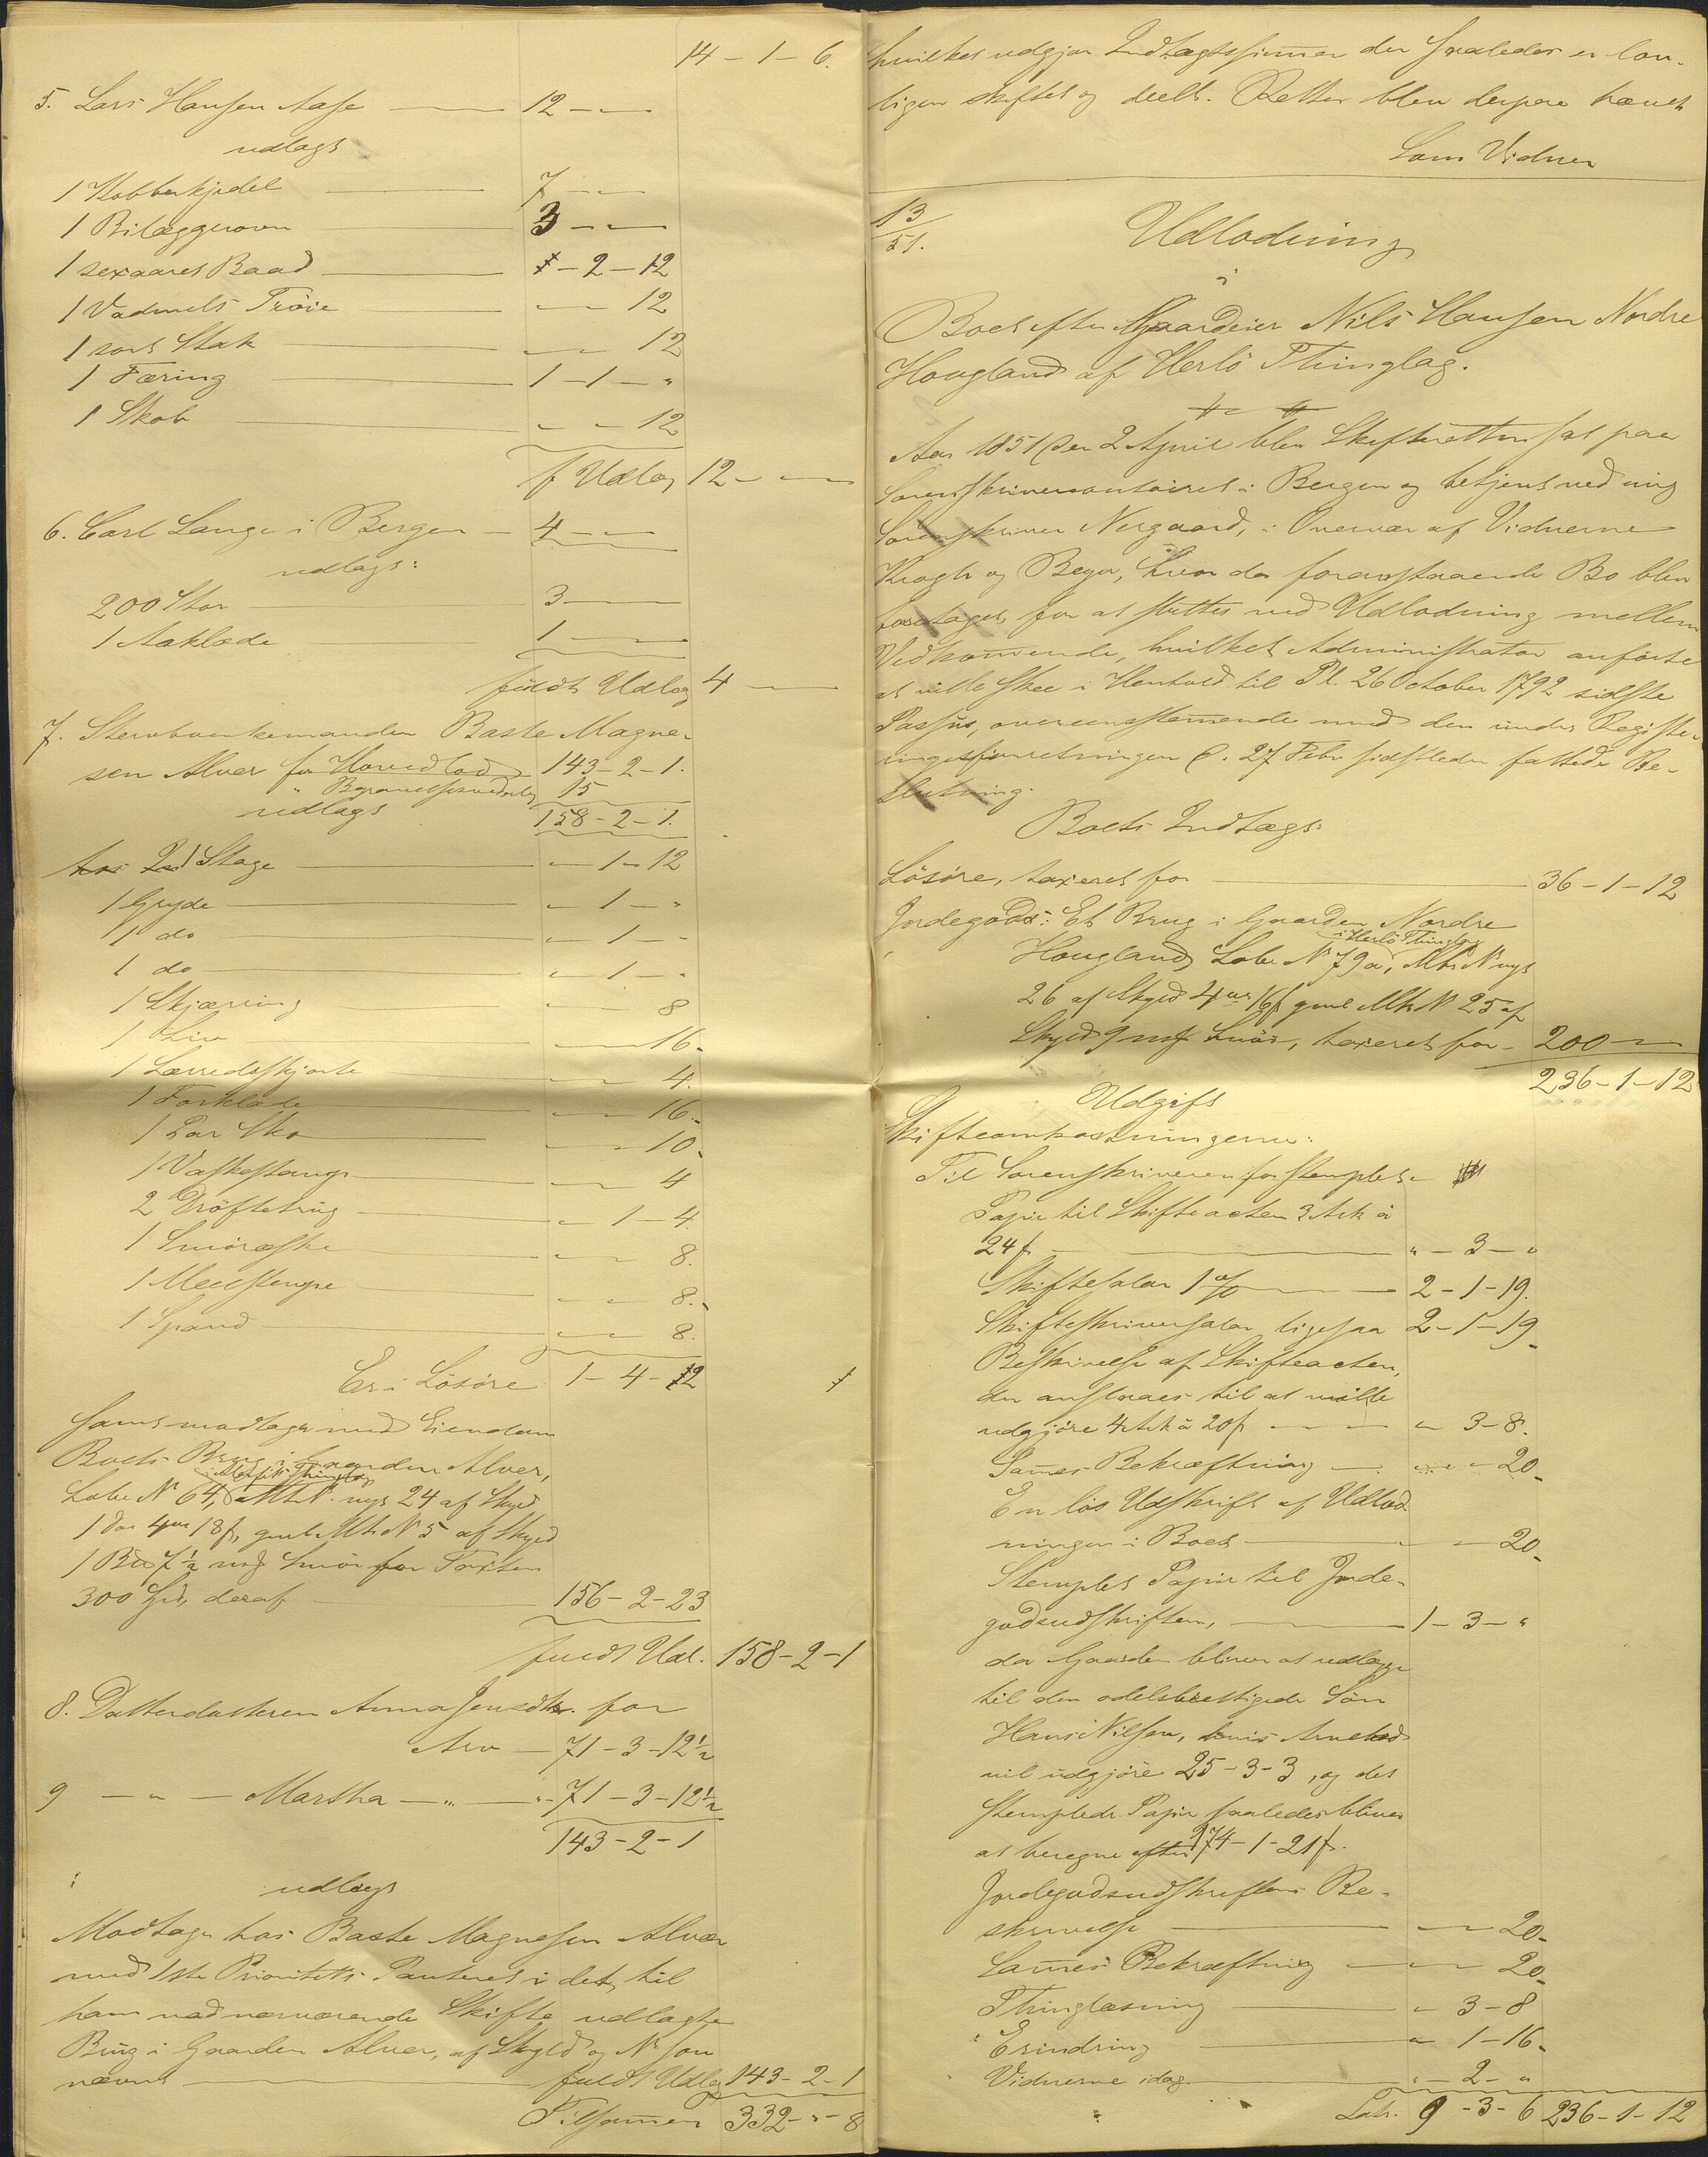 14 - 1 - 6.
5. Lars Hansen Aase 12 - -
udlagt
1 Kobberkjedel 7 - -
1 Bilæggerovn 3 - -
1 sexaaret Baad 1 - 2 - 12
1 Vadmels Trøie - - 12
1 sort Stak - - 12
1 Færing 1 - 1 - "
1 Skab - - 12
f Udlæg 12 - -
6. Carl Lange i Bergen - 4 - -
udlagt:
200 Stør 3 - -
1 Aaklæde 1 - -
fuldt Udlæg 4 - -
7. Stervboenkemanden Baste Magne-
sen Alver for Hovedlod 143 - 2 - 1.
" Begravelsesudlæg 15
udlagt 158 - 2 - 1.
1 Stage - 1 - 12
1 Gryde - 1 - "
1 do - 1 - -
1 do - 1 - -
1 Skjærring - - 8
1 Liv - - 16.
1 Lærredsskjorte - - 4.
1 Forklæde - - 16.
1 Par Sko - - 10.
1 Vaskestamp - - 4
2 Drøftetrug - 1 - 4
1 Smøræske - - 8.
1 Meelstampe - - 8.
1 Spand - - 8.
Er i Løsøre 1 - 4 - 12
samt modtager med Eiendom
Boets Brug i Gaarden Alver,
i Thinglag
Løbe N 64, Mt N. nyt 24 af Skyld
1 Dar 4 ort 18 f, gml Mt N 5 af Skyld
1 7½ mf Smør for Taxten
300 Spd, deraf 156 - 2 - 23
fuldt Udl. 158 - 2 - 1
8. Datterdatteren Anna Jensdtr. for
Arv - 71 - 3 - 12½
9 - " - Martha - " - 71 - 3 - 12½
143 - 2 - 1
udlagt
Modtager hos Baste Magnesen Alver
med 1ste Prioritets Panteret i det, til
ham ved nærværende Skifte udlagte
Brug i Gaarden Alver, af Skyld og N som
nævnt fuldt Udlæg 143 - 2 - 1
Tilsammen 332 - " - 8
hvilket udgjør Indtægtssummen der saaledes er lov-
ligen skiftet og deelt. Retten blev derpaa hævet
Som Vidner
13/51.
Udlodning
i
Boet efter Gaardeier Nils Hansen Nordre
Hougland af Herlø Thinglag.
Aar 1851 den 2 April blev Skifteretten sat paa
Sorenskrivercontoiret i Bergen og betjent ved mig
Sorenskriver Nergaard, i Overvær af Vidnerne
Krogh og Beyer, hvor da foranstaaende Bo blev
foretaget, for at sluttes ved Udlodning mellem
Vedkommende, hvilket Administrator anførte
at ville skee i Henhold til Pl. 26 October 1792 sidste
Passus, overeensstemmende med den under Registe-
ringsforretningen d. 27 Febr sidstleden fattede Be-
slutning.
Boets Indtægt:
Løsøre, taxeret for 36 - 1 - 12
Jordegods: Et Brug i Gaarden Nordre
i Herlø Thinglag
Hougland, Løbe N 79a, Mt N nyt
26 af Skyld 4 ort 16 f gml Mt N 25 af
Skyld 9 mf Smør, taxeret for - 200 - -
236 - 1 - 12
Udgift
Skifteomkostningerne:
Til Sorenskriveren for stemplet
Papir til Skifteacten 3 Ark à
24 f " - 3 - "
Skiftesalær 1 % 2 - 1 - 19.
Skifteskriversalær ligesaa 2 - 1 - 19
Beskrivelse af Skifteacten,
der anslaaes til at ville
udgjøre 4 Ark à 20 f - 3 - 8.
Sammes Bekræftning - - 20.
En løs Udskrift af Udlod-
ningen i Boet - - 20.
Stemplet Papir til Jorde-
godsudskriften, 1 - 3 - "
da Gaarden bliver at udlægge
til den odelsberettigede Søn
Hans Nilsen, hvis Arvelod
vil udgjøre 25 - 3 - 3, og det
stemplede Papir saaledes bliver
at beregne efter 174 - 1 - 21 f.
Jordegodsudskriftens Be-
skrivelse - - 20.
Sammes Bekræftning - - 20.
Thinglæsning - 3 - 8
Erindring - 1 - 16.
Vidnerne idag " - 2 - "
Lats. 9 - 3 - 6 236 - 1 - 12